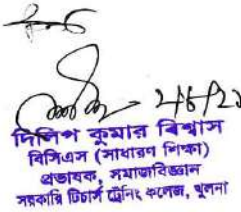 দিলিপ কুমার বিশ্বাস
বিসিএস (সাধারণ শিক্ষা)
প্রভাষক, সমাজবিজ্ঞান
সরকারি টিচার্স ট্রেনিং কলেজ, খুলনা